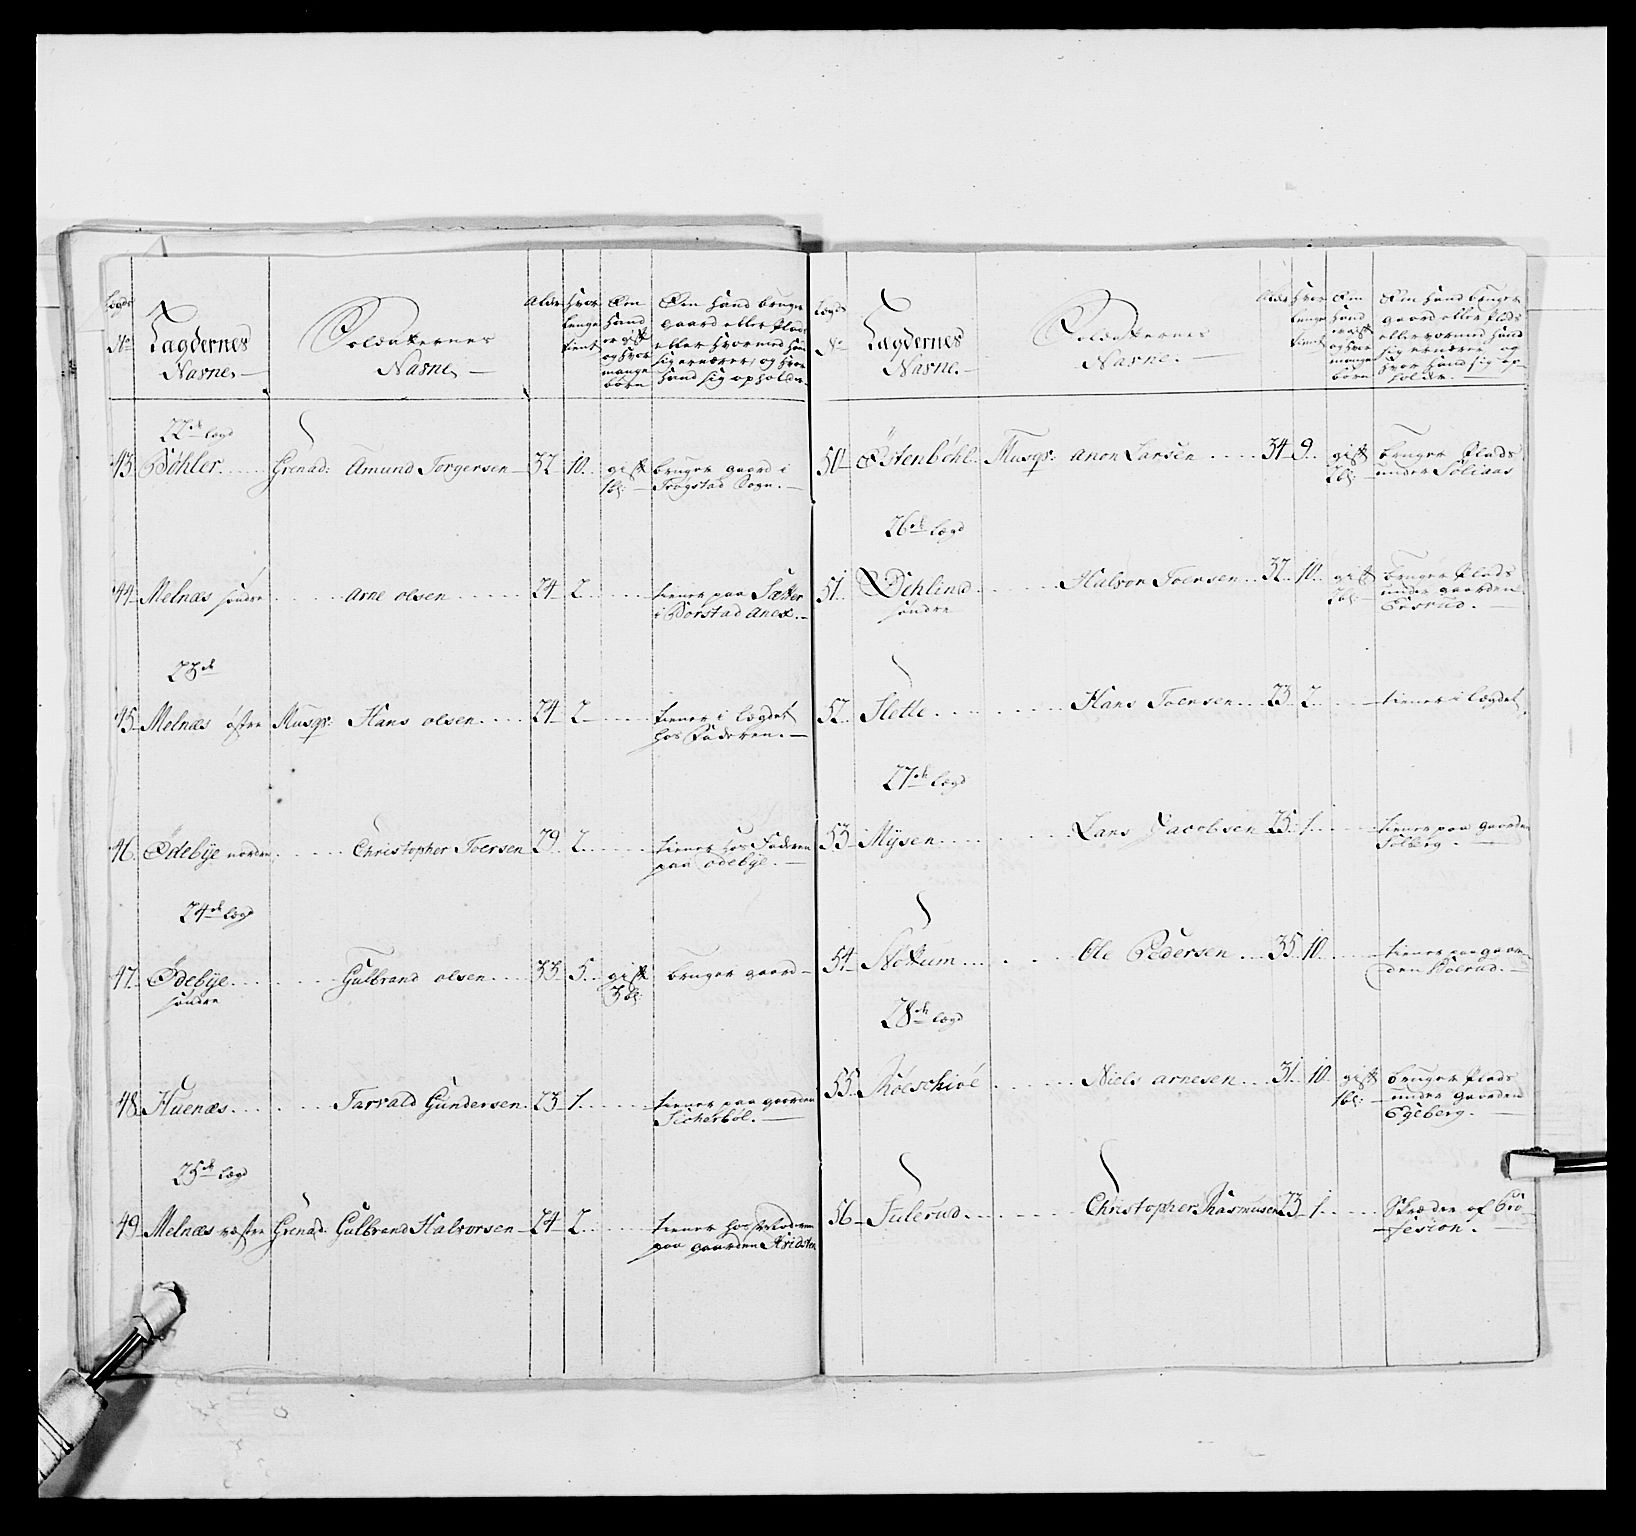 Lægds No
Lagdernes Nafne.
Soldaternes Nafne
Alder
Hvor lenge tient
Om hand er gift og hvor mange börn
Om hand bruger gaard eller Plads eller hvormed hand sig ernærer, og hvor hand sig opholder
22de lægd
43 Böhler Grenad: Amund Torgersen 32 10 gift 1 b: bruger gaard i
Trogstad Sogn.
44 Melnæs söndre Arne olsen 24 2 tiener paa Sætter
i Borstad anex.
23de
45 Melnæs östre Musqr: Hans olsen 24 2 tiener i lægdet
hos Faderen.
46 Ödebÿe nordre Christopher Toersen 29 2 tiener hos Faderen
paa ödebÿe.
24de lægd
47 Ödebÿe söndre Gulbrand olsen 33 5 gift 3 b: bruger gaard
48 Huenæs Tarvald Gundersen 23 1 tiener paa gaarden
25de lægd
49 Melnæs væstre Grenad: Gulbrand Halvorsen 24 2 tiener hos
paa gaarden
Lægds No
Lagdernes Nafne.
Soldaternes Nafne.
Alder
Hvor lenge tient
Om hand er gift og hvor mange börn
Om hand bruger gaard eller Plads eller hvormed hand sig ernærer og hvor hand sig opholder.
50 Östenböhl Musqr: anon Larsen 34 9 gift 2 b: bruger Plads
under Soliaas
26de lægd
51 Dehlind söndre Halvor Toersen 32 10 gift 2 b: bruger Plads
under gaarden
52 Slette Hans Toersen 23 2 tiener i lægdet
27de lægd
53 Mÿsen Lars Jacobsen 25 1 tiener paa gaarden
Solberg.
54 Slottum Ole Pedersen 35 10 tiener paa gaar-
den
28de lægd
55 Niels arnesen 31 10 gift 1 b: bruger Plads
under gaarden
Egeberg.
56 Sulerud Christopher Rasmusen 23 1 Skræder af Pro-
fesion.